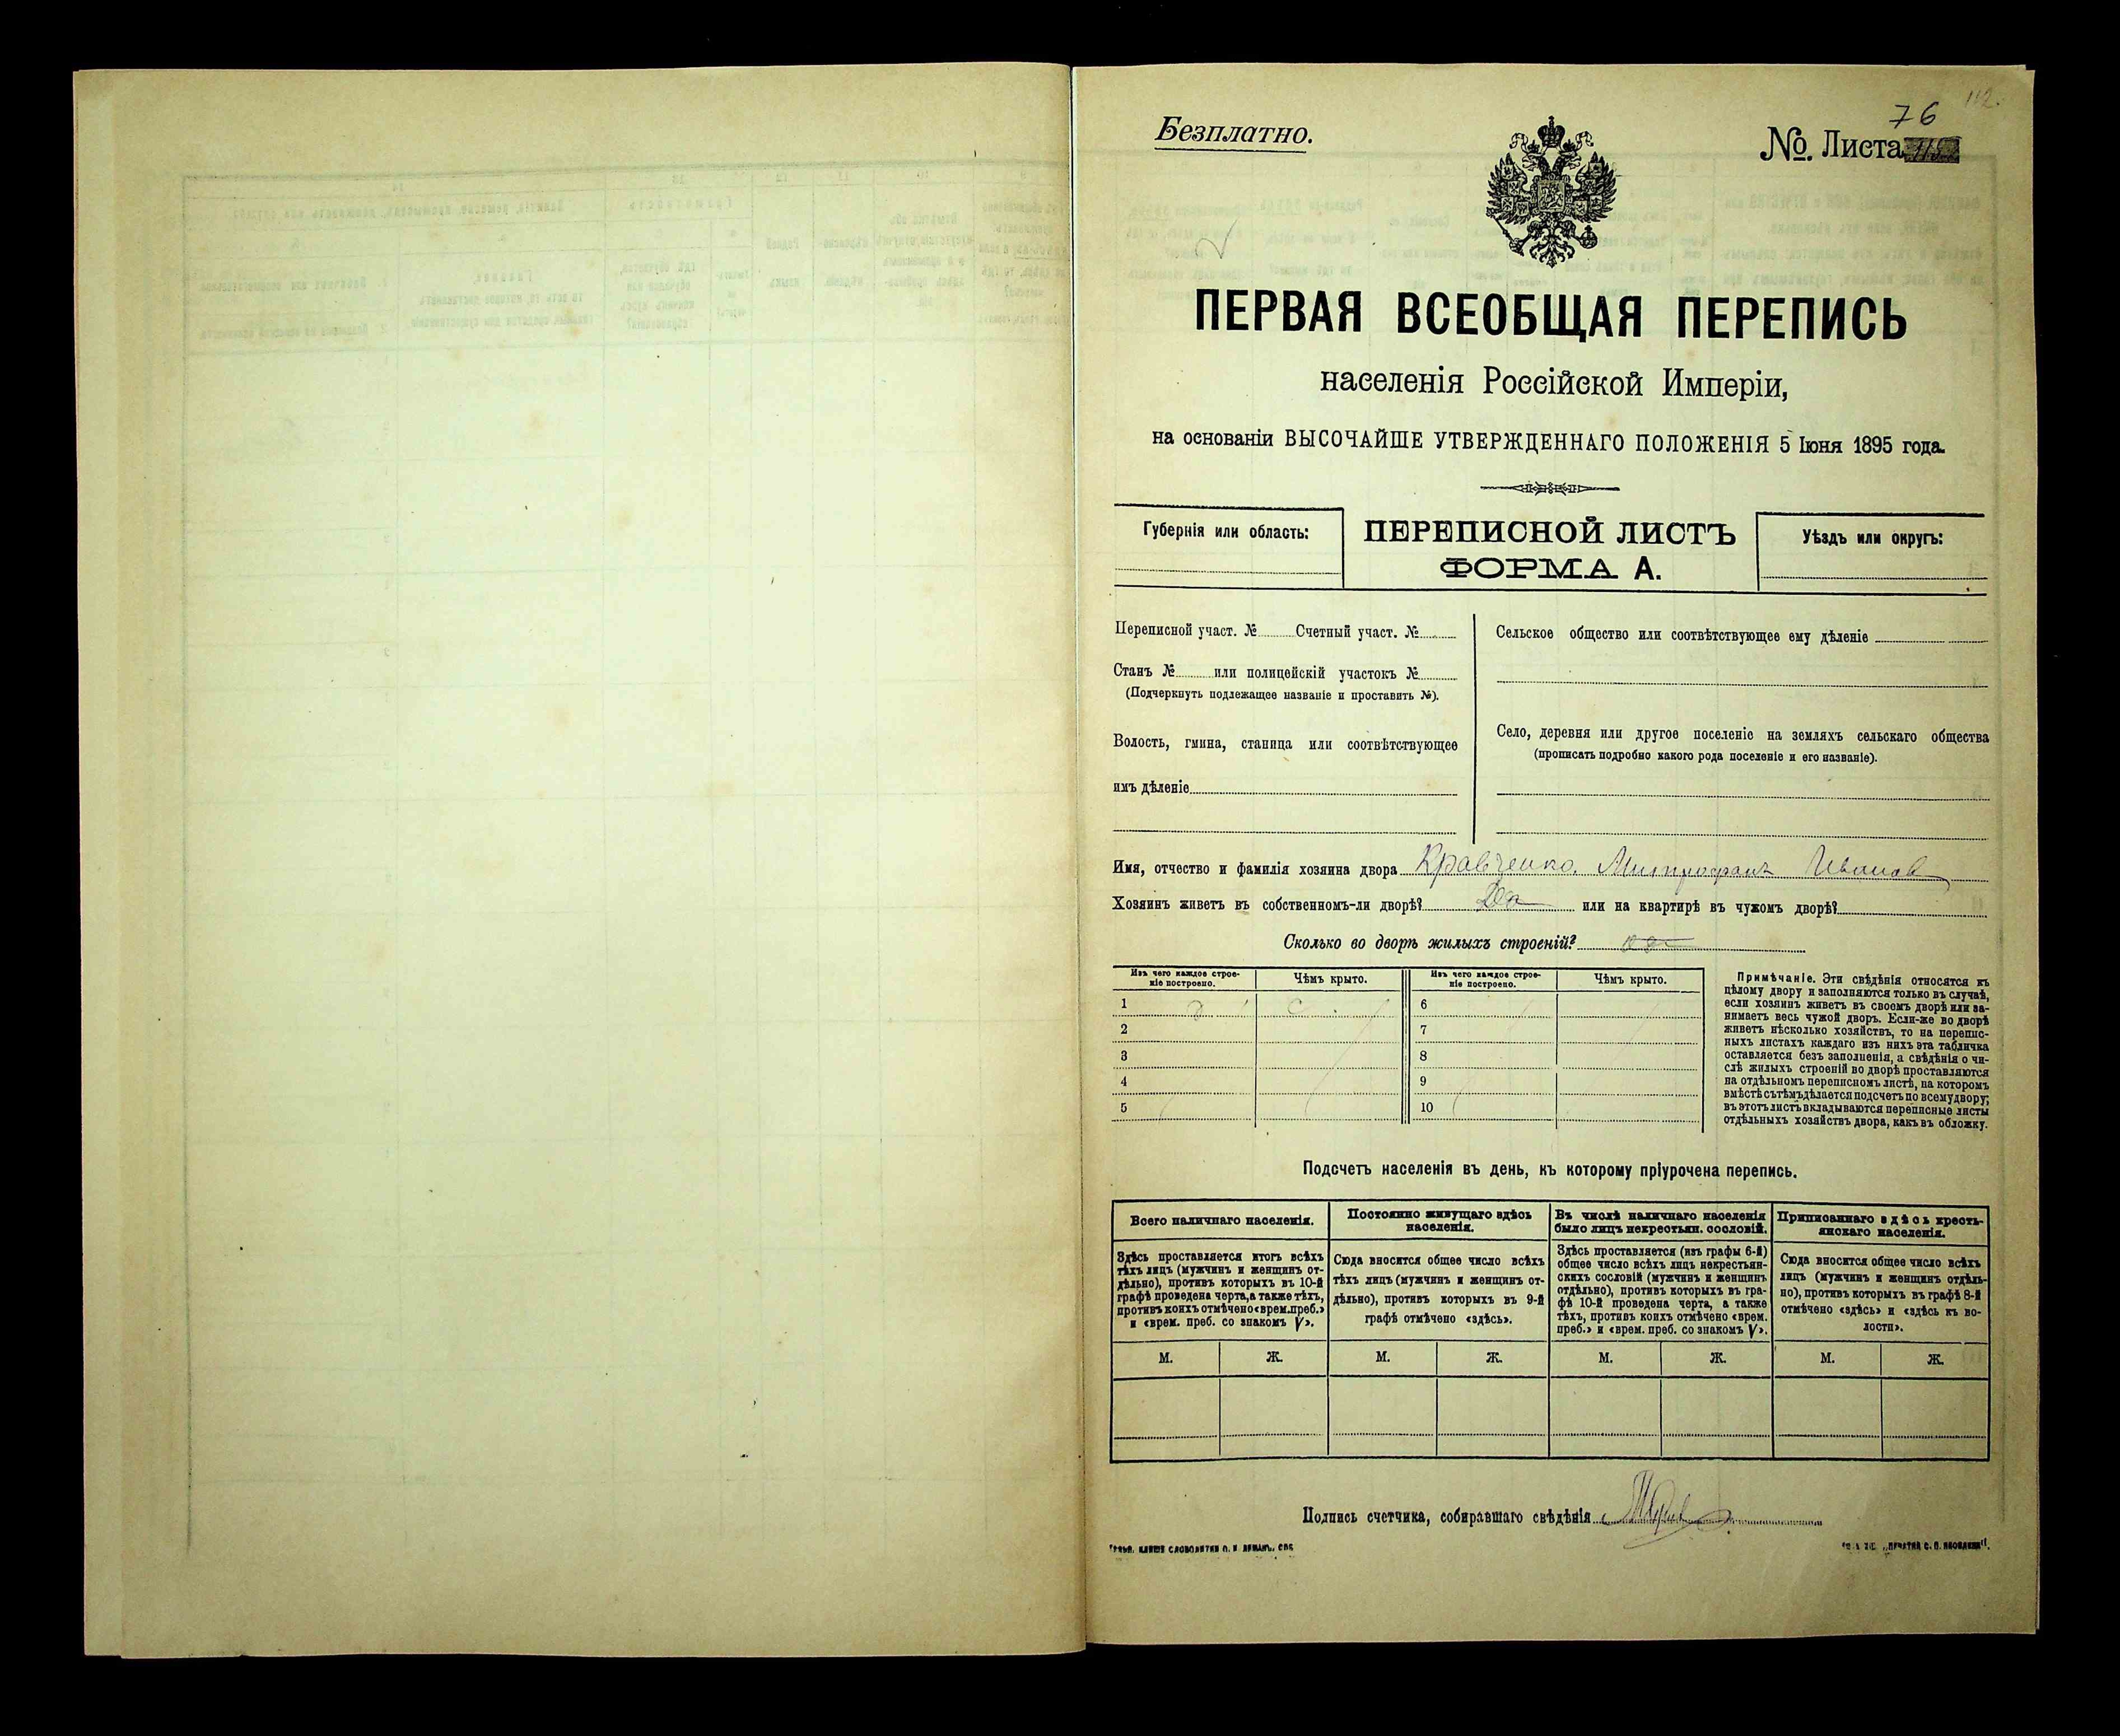 112.
Безплатно.
76
№. Листа
ПЕРВАЯ ВСЕОБЩАЯ ПЕРЕПИСЬ
населенія Россійской Имперіи,
на основаніи ВЫСОЧАЙШЕ УТВЕРЖДЕННАГО ПОЛОЖЕНІЯ 5 Іюня 1895 года.
Губернія или область:
ПЕРЕПИСНОЙ ЛИСТЪ
ФОРМА А.
Уѣздъ или округъ:
Переписной участ. № Счетный участ. №
Станъ № или полицейскій участокъ №
(Подчеркнуть подлежащее названіе и проставить №).
Волость, гмина, станица или соотвѣтствующее
имъ дѣленіе
Сельское общество или соотвѣтствующее ему дѣленіе
Село, деревня или другое поселеніе на земляхъ сельскаго общества
(прописать подробно какого рода поселеніе и его названіе).
Имя, отчество и фамилія хозяина двора Кравченко Митрофанъ Иванов
Хозяинъ живетъ въ собственномъ-ли дворѣ? Да или на квартирѣ въ чужомъ дворѣ?
Сколько во дворѣ жилыхъ строеній?
Изъ чего каждое строе-
ніе построено.
Чѣмъ крыто.
Изъ чего каждое строе-
ніе построено.
Чѣмъ крыто.
1 6
2 7
3 8
4 9
5 10
Примѣчаніе. Эти свѣдѣнія относятся къ
цѣлому двору и заполняются только въ случаѣ,
если хозяинъ живетъ въ своемъ дворѣ или за-
нимаетъ весь чужой дворъ. Если-же во дворѣ
живетъ нѣсколько хозяйствъ, то на перепис-
ныхъ листахъ каждаго изъ нихъ эта табличка
оставляется безъ заполненія, а свѣдѣнія о чи-
слѣ жилыхъ строеній во дворѣ проставляются
на отдѣльномъ переписномъ листѣ, на которомъ
вмѣстѣ съ тѣмъ дѣлается подсчетъ по всему двору;
въ этотъ листъ вкладываются переписные листы
отдѣльныхъ хозяйствъ двора, какъ въ обложку.
Подсчетъ населенія въ день, къ которому пріурочена перепись.
Всего наличнаго населенія.
Здѣсь проставляется итогъ всѣхъ
тѣхъ лицъ (мужчинъ и женщинъ от-
дѣльно), противъ которыхъ въ 10-й
графѣ проведена черта, а также тѣхъ,
противъ коихъ отмѣчено «врем. преб.»
и «врем. преб. со знакомъ V».
Постоянно живущаго здѣсь
населенія.
Сюда вносится общее число всѣхъ
тѣхъ лицъ (мужчинъ и женщинъ от-
дѣльно), противъ которыхъ въ 9-й
графѣ отмѣчено «здѣсь».
Въ числѣ наличнаго населенія
было лицъ некрестьян. сословій.
Здѣсь проставляется (изъ графы 6-й)
общее число всѣхъ лицъ некрестьян-
скихъ сословій (мужчинъ и женщинъ
отдѣльно), противъ которыхъ въ гра-
фѣ 10-й проведена черта, а также
тѣхъ, противъ коихъ отмѣчено «врем.
преб.» и «врем. преб. со знакомъ V».
Приписаннаго здѣсь кресть-
янскаго населенія.
Сюда вносится общее число всѣхъ
лицъ (мужчинъ и женщинъ отдѣль-
но), противъ которыхъ въ графѣ 8-й
отмѣчено «здѣсь» и «здѣсь къ во-
лости».
М. Ж. М. Ж. М. Ж. М. Ж.
Подпись счетчика, собиравшаго свѣдѣнія